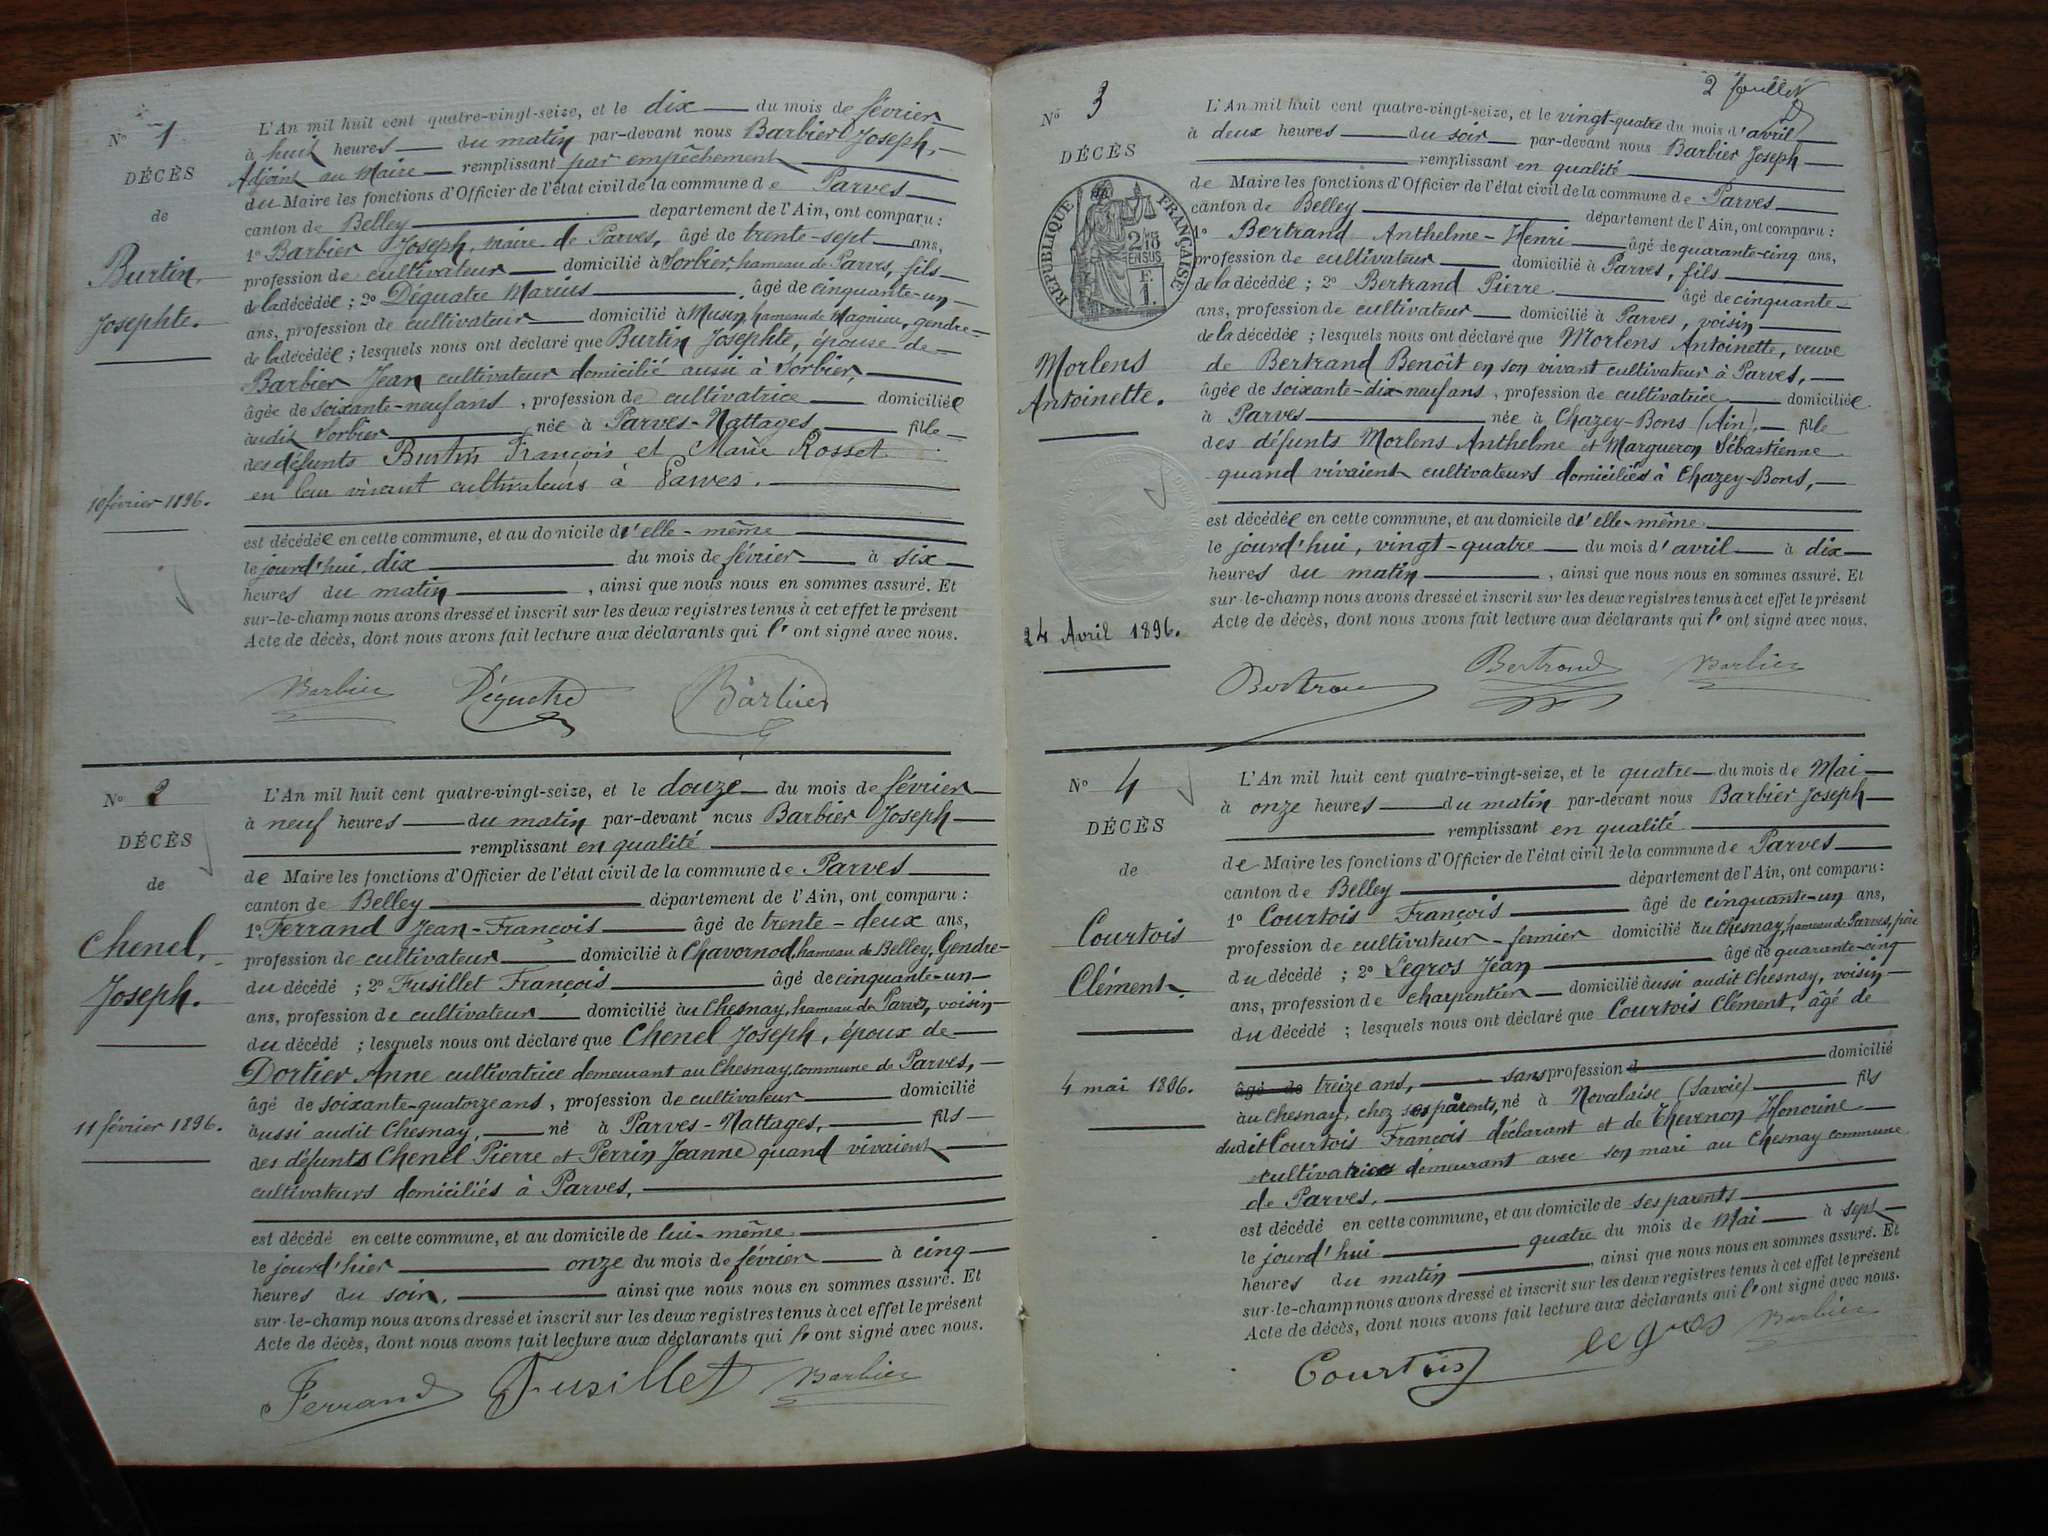 N° 1
DÉCÈS
de
Burtin
Josephte.
10 février 1896.
L'An mil huit cent quatre-vingt-seize, et le dix du mois de février
à huit heures du matin par-devant nous Barbier Joseph,
Adjoint au Maire remplissant par empêchement
du Maire les fonctions d'Officier de l'état civil de la commune de Parves
canton de Belley département de l'Ain, ont comparu :
1° Barbier Joseph, maire de Parves, âgé de trente-sept ans,
profession de cultivateur domicilié à Sorbier, hameau de Parves, fils
de la décédée ; 2° Déquatre Marius âgé de cinquante-un
ans, profession de cultivateur domicilié à Musin, hameau de Magnieu, gendre
de la décédée ; lesquels nous ont déclaré que Burtin Josephte, épouse de
Barbier Jean cultivateur domicilié aussi à Sorbier,
âgée de soixante-neuf ans, profession de cultivatrice domiciliée
audit Sorbier née à Parves-Nattages fille
des défunts Burtin François et Marie Rosset
en leur vivant cultivateurs à Parves.
est décédée en cette commune, et au domicile d'elle-même
le jourd'hui dix du mois de février à six
heures du matin, ainsi que nous nous en sommes assuré. Et
sur-le-champ nous avons dressé et inscrit sur les deux registres tenus à cet effet le présent
Acte de décès, dont nous avons fait lecture aux déclarants qui l' ont signé avec nous.
Barbier Déquatre Barbier
N° 2
DÉCÈS
de
Chenel,
Joseph.
11 février 1896.
L'An mil huit cent quatre-vingt-seize, et le douze du mois de février
à neuf heures du matin par-devant nous Barbier Joseph
remplissant en qualité
de Maire les fonctions d'Officier de l'état civil de la commune de Parves
canton de Belley département de l'Ain, ont comparu :
1° Ferrand Jean-François âgé de trente-deux ans,
profession de cultivateur domicilié à Chavornod, hameau de Belley, Gendre
du décédé ; 2° Fusillet François âgé de cinquante-un
ans, profession de cultivateur domicilié au Chesnay, hameau de Parves, voisin
du décédé ; lesquels nous ont déclaré que Chenel Joseph, époux de
Dortier Anne cultivatrice demeurant au Chesnay, commune de Parves,
âgé de soixante-quatorze ans, profession de cultivateur domicilié
aussi audit Chesnay, né à Parves-Nattages, fils
des défunts Chenel Pierre et Perrin Jeanne quand vivaient
cultivateurs domiciliés à Parves,
est décédé en cette commune, et au domicile de lui-même
le jourd'hier onze du mois de février à cinq
heures du soir, ainsi que nous nous en sommes assuré. Et
sur-le-champ nous avons dressé et inscrit sur les deux registres tenus à cet effet le présent
Acte de décès, dont nous avons fait lecture aux déclarants qui l' ont signé avec nous.
Ferrand Fusillet Barbier
2
N° 3
DÉCÈS
RÉPUBLIQUE FRANÇAISE
2/10
EN SUS
F.
1.
Morlens
Antoinette.
24 Avril 1896.
L'An mil huit cent quatre-vingt-seize, et le vingt-quatre du mois d'avril
à deux heures du soir par-devant nous Barbier Joseph
remplissant en qualité
de Maire les fonctions d'Officier de l'état civil de la commune de Parves
canton de Belley département de l'Ain, ont comparu :
1° Bertrand Anthelme-Henri âgé de quarante-cinq ans,
profession de cultivateur domicilié à Parves, fils
de la décédée ; 2° Bertrand Pierre âgé de cinquante
ans, profession de cultivateur domicilié à Parves, voisin
de la décédée ; lesquels nous ont déclaré que Morlens Antoinette, veuve
de Bertrand Benoît en son vivant cultivateur à Parves,
âgée de soixante-dix-neuf ans, profession de cultivatrice domiciliée
à Parves née à Chazey-Bons (Ain), fille
des défunts Morlens Anthelme et Margueron Sébastienne
quand vivaient cultivateurs domiciliés à Chazey-Bons,
est décédée en cette commune, et au domicile d'elle-même
le jourd'hui, vingt-quatre du mois d'avril à dix
heures du matin, ainsi que nous nous en sommes assuré. Et
sur-le-champ nous avons dressé et inscrit sur les deux registres tenus à cet effet le présent
Acte de décès, dont nous avons fait lecture aux déclarants qui l' ont signé avec nous.
Bertrand Bertrand Barbier
N° 4
DÉCÈS
de
Courtois
Clément.
4 mai 1896.
L'An mil huit cent quatre-vingt-seize, et le quatre du mois de Mai
à onze heures du matin par-devant nous Barbier Joseph
remplissant en qualité
de Maire les fonctions d'Officier de l'état civil de la commune de Parves
canton de Belley département de l'Ain, ont comparu :
1° Courtois François âgé de cinquante-un ans,
profession de cultivateur-fermier domicilié au Chesnay, hameau de Parves, père
du décédé ; 2° Legros Jean âgé de quarante-cinq
ans, profession de charpentier domicilié aussi audit Chesnay, voisin
du décédé ; lesquels nous ont déclaré que Courtois Clément, âgé de
âgé de treize ans, sans profession d domicilié
au Chesnay, chez ses parents, né à Novalaise (Savoie) fils
dudit Courtois François déclarant et de Thevenon Honorine
cultivatrice demeurant avec son mari au Chesnay commune
de Parves.
est décédé en cette commune, et au domicile de ses parents
le jourd'hui quatre du mois de Mai à sept
heures du matin, ainsi que nous nous en sommes assuré. Et
sur-le-champ nous avons dressé et inscrit sur les deux registres tenus à cet effet le présent
Acte de décès, dont nous avons fait lecture aux déclarants qui l' ont signé avec nous.
Courtois legros Barbier